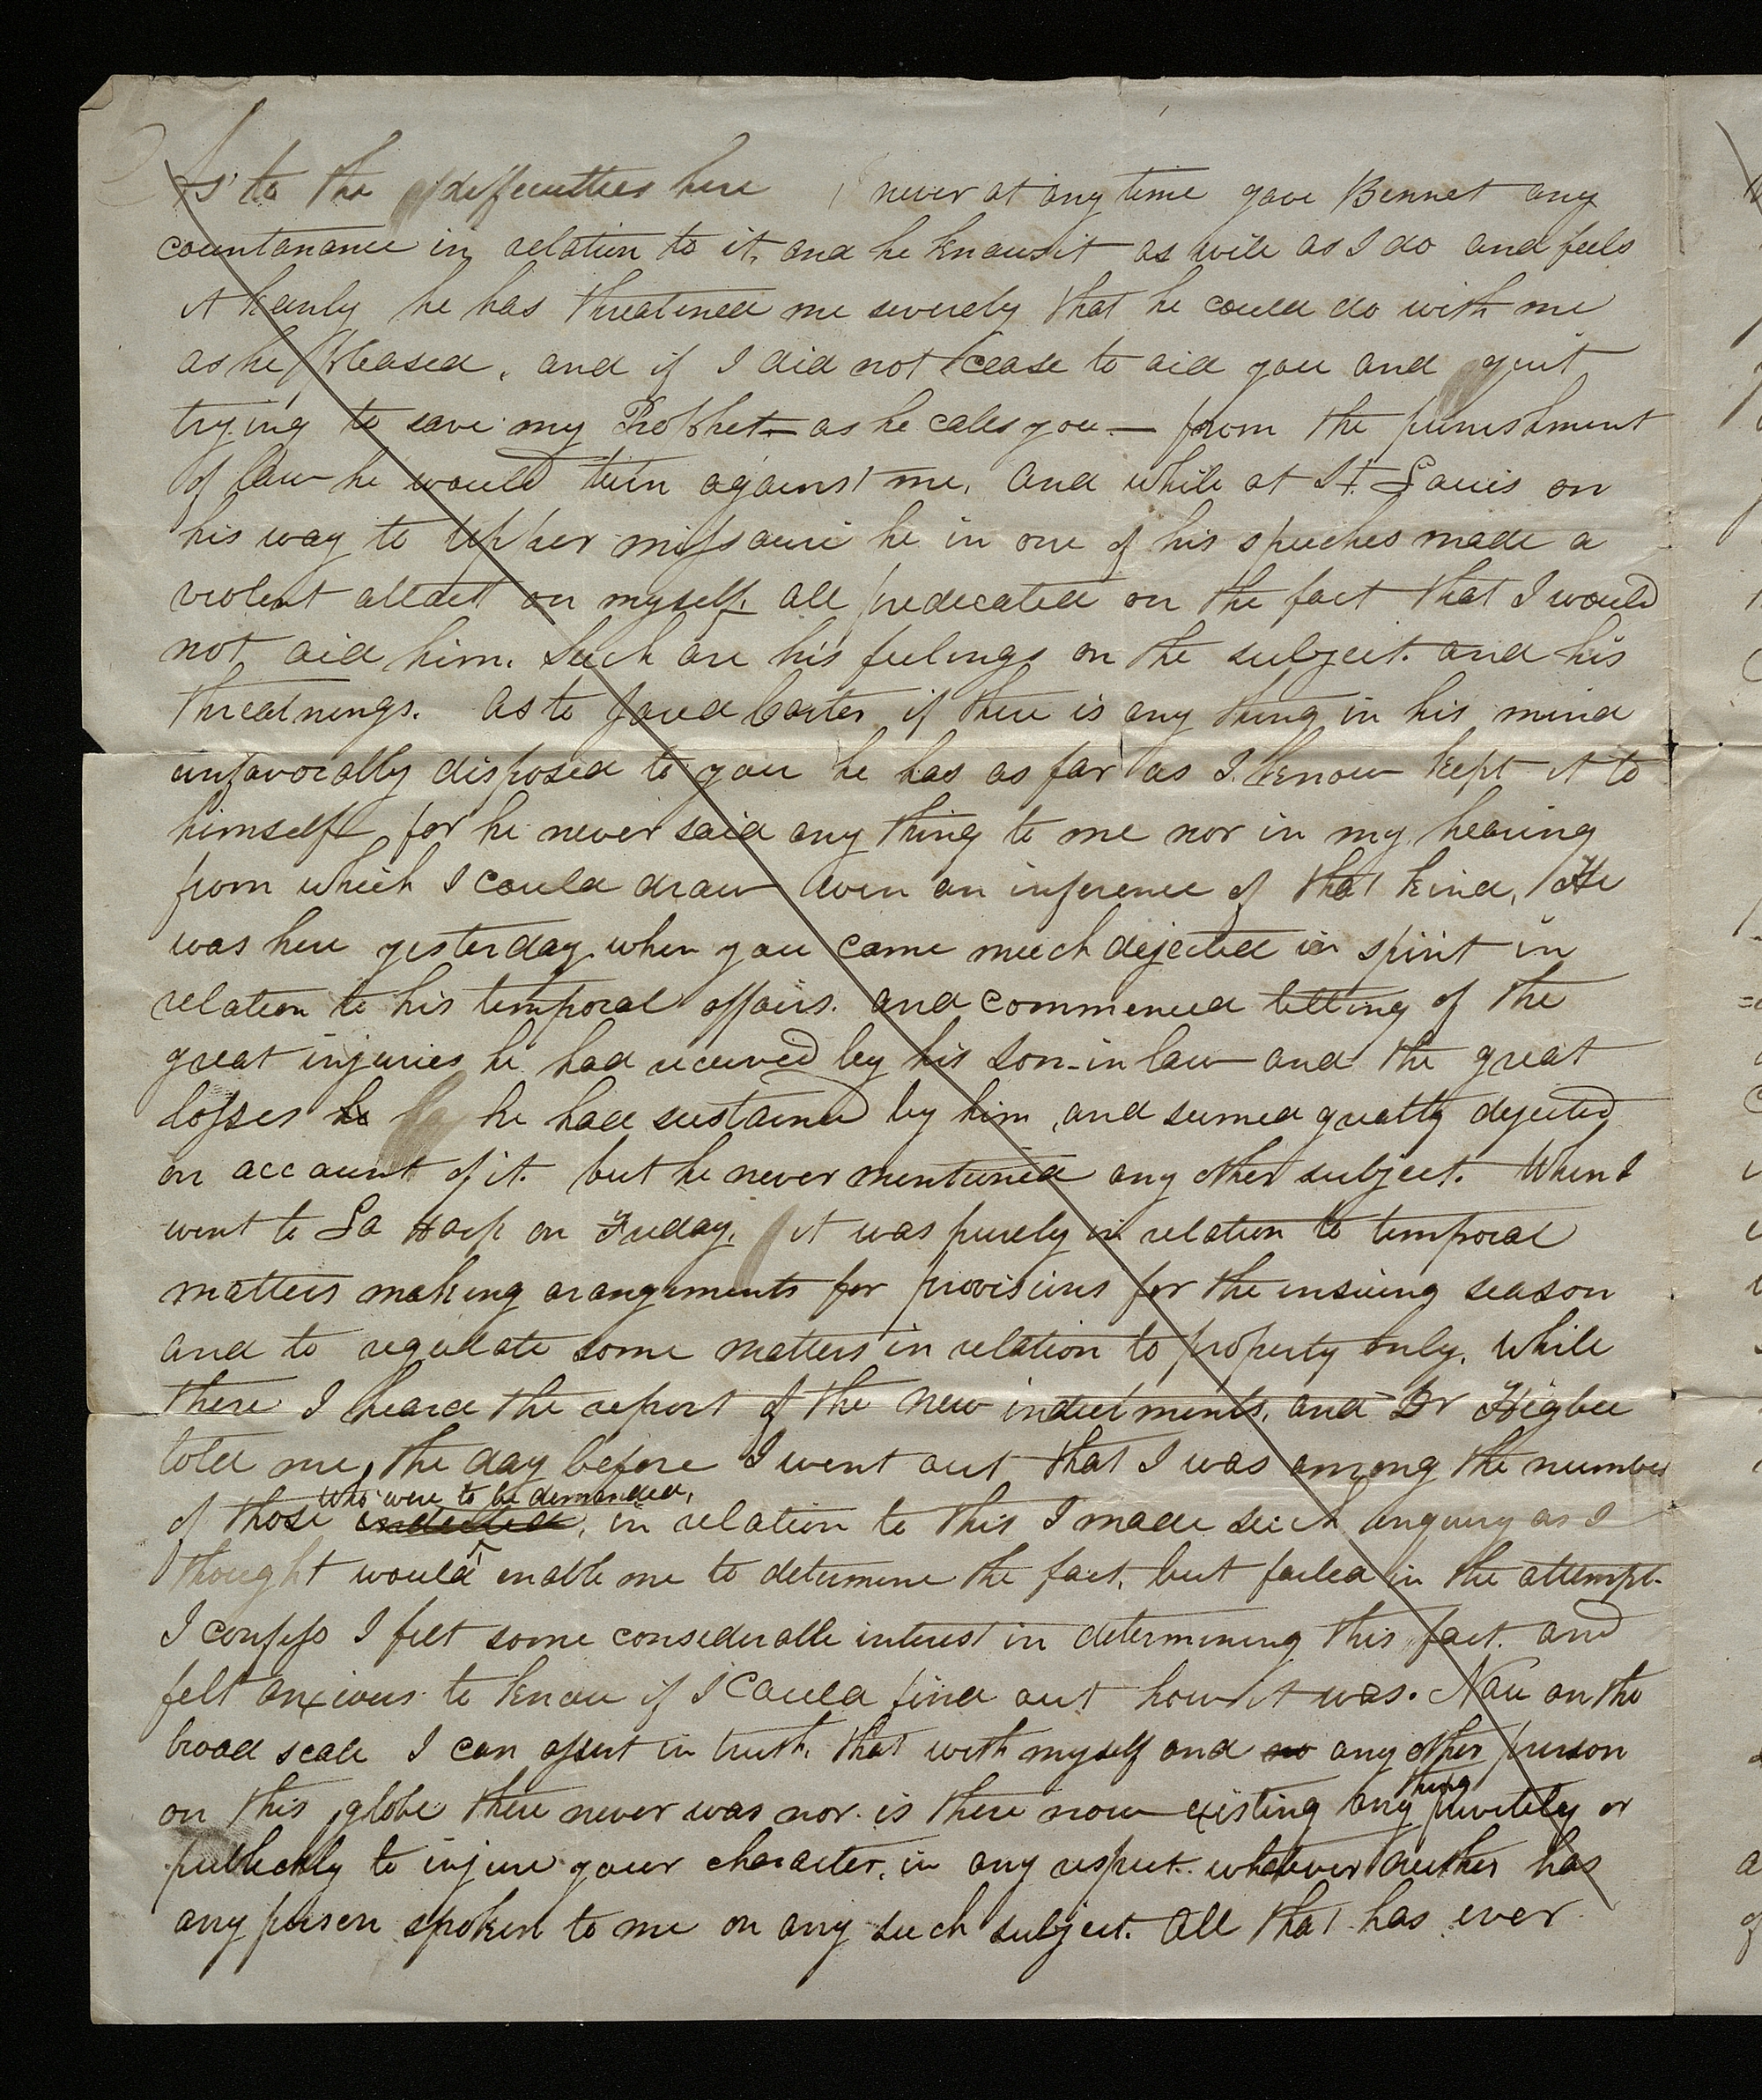 As to the difficulties here I never at any time gave Bennet any
countanance in relation to it, and he knows it as well as I do and feels
it keenly he has threatened me severely that he could do with me
as he pleased, and if I did not cease to aid you and quit
trying to save my Prophet— as he calls you— from the punishment
of law he would turn against me, and while at St. Louis on
his way to Upper missouri he in one of his speeches made a
violent attact on myself. all predicated on the fact that I would
not aid him. Such are his feelings on the subject. and his
threatnings. as to Jared Carter if there is any thing in his mind
unfavorably disposed to you he has as far as I know kept it to
himself for he never said any thing to me nor in my hearing
from which I could draw even an inference of that kind, He
was here yesterday when you came much dejected in spirit in
relation to his temporal affairs. and commenced telling of the
great injuries he had received by his son-in law and the great
losses he he had sustained by him, and seemed greatly dejected
on account of it. but he never mentioned any other subject. When I
went to La Harp on Friday, it was purely in relation to temporal
matters making arangements for provisions for the insuing season
and to regulate some matters in relation to property only. While
there I heard the report of the new indictments, and Dr Higbee
told me, the day before I went out that I was among the number
who were to be demanded,
of those indicted, in relation to this I made such enquiry as I
thought would enable me to determine the fact, but failed in the attempt.
I confess I felt some considerable interest in determining this fact. and
felt anxious to know if I could find out how it was. Now on the
broad scale I can assert in truth, that with myself and no any other person
thing
on this globe there never was nor is there now existing any privately or
publickly to injure your character, in any respect whatever neither has
any person spoken to me on any such subject. all that has ever